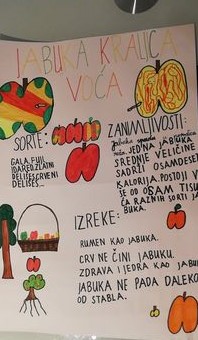 JABUKA KRALJICA
VOĆA
SORTE:
GALA, FUJI,
IDARED, ZLATNI
DELIŠES, CRVENI
DELIŠES...
ZANIMLJIVOSTI:
JEDNA JABUKA
SREDNJE VELIČINE
SADRŽI OSAMDESET
KALORIJA. POSTOJI V
ŠE OD OSAM TISU
ĆA RAZNIH SORTI JA
BUKA.
IZREKE:
RUMEN KAO JABUKA.
CRV NE ČINI JABUKU.
ZDRAVA I JEDRA KAO JABUKA
JABUKA NE PADA DALEKO
OD STABLA.